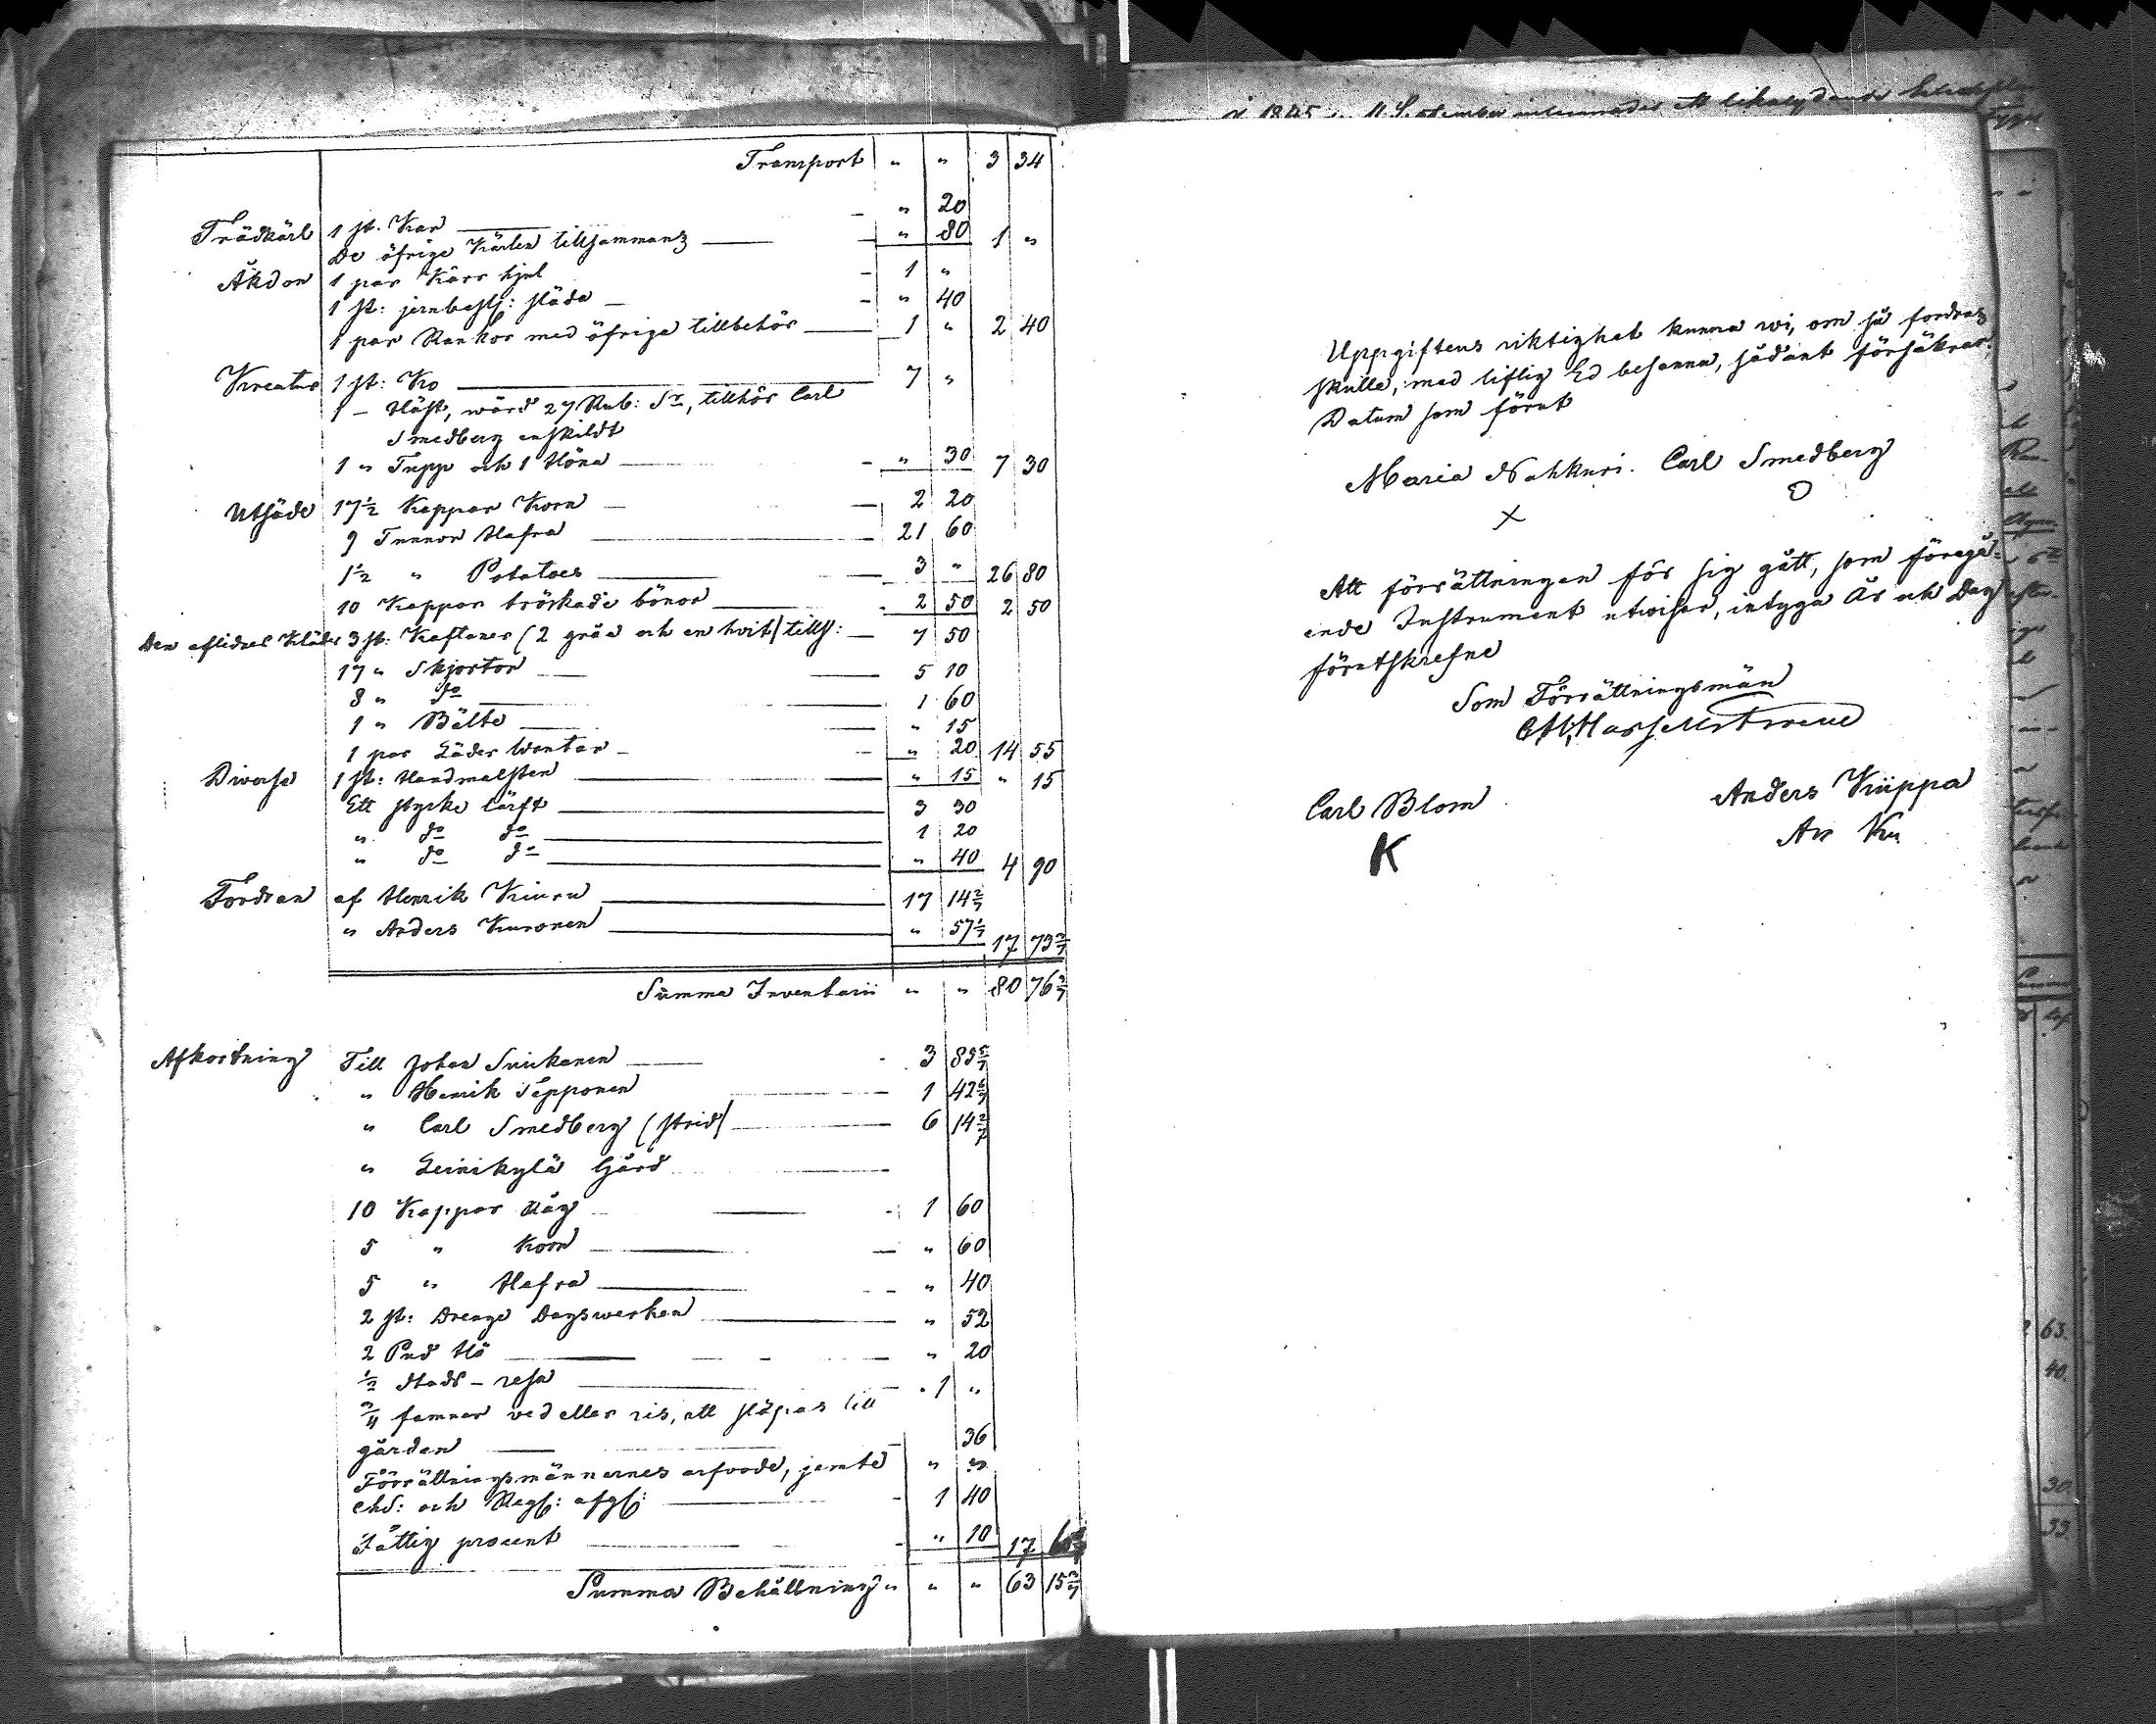 Transport " " 3 34
Trädkärl 1 st. Kar " 20
De öfrige Kärlen tillsammans " 80 1 "
Åkdon 1 par Kärr hjul 1 "
1 st: jernbesl: släda " 40
1 par Rankor med öfrige tillbehör 1 " 2 40
Kreatur 1 st: Ko 7 "
1 – Häst, wärd 27 Rub: Sr, tillhör Carl
Smedberg enskildt
1 " Tupp och 1 Höna " 30 7 30
Utsäde 17½ Kappar Korn 2 20
9 Tunnor Hafra 21 60
1½ " Potatoes 3 " 26 80
10 Kappar tröskade bönor 2 50 2 50
Den aflidnes Kläder 3 st: Kaftaner (2 gråa och en hvit) tills: 7 50
17 " Skjortor 5 10
8 " do 1 60
1 " Bälte " 15
1 par Läder Wantar " 20 14 55
Diverse 1 st: Handmalsten " 15 " 15
Ett stycke lärft 3 30
" do do 1 20
" do do " 40 4 90
Fordran af Henrik Kiuru 17 14 2/7
" Anders Kuronen " 57 1/7 17 73 3/7
Summa Inventarii " " 80 76 3/7
Afkortning Till Johan Suikanen 3 85 5/7
" Henrik Tepponen 1 42 6/7
" Carl Smedberg (strid) 6 14 2/7
" Leinikylä Gård
10 Kappar Råg 1 60
5 " Korn " 60
5 " Hafra " 40
2 st: Drenge Dagswerken " 52
2 Pud Hö " 20
½ Stads-resa 1 "
¾ famnar ved eller ris, att släpas till
gården 36
Förrättningsmännernes arfvode, jemte " "
chd: och Regs: afgf: 1 40
Fattig procent " 10 17
Summa Behållning " " " 63 15 3/7
1845 September
Uppgiftens riktighet kunna wi, om så fordras
skulle, med liflig Ed besanna, sådant försäkras.
Datum som förut
Maria Nahkuri. Carl Smedberg
X O
Att förrättningen för sig gått, som föregå-
ende Instrument utwisar, intyga År och Dag
förutskrefne
Som Förrättningsmän
Carl Blom Anders Kiippa
K An Ku